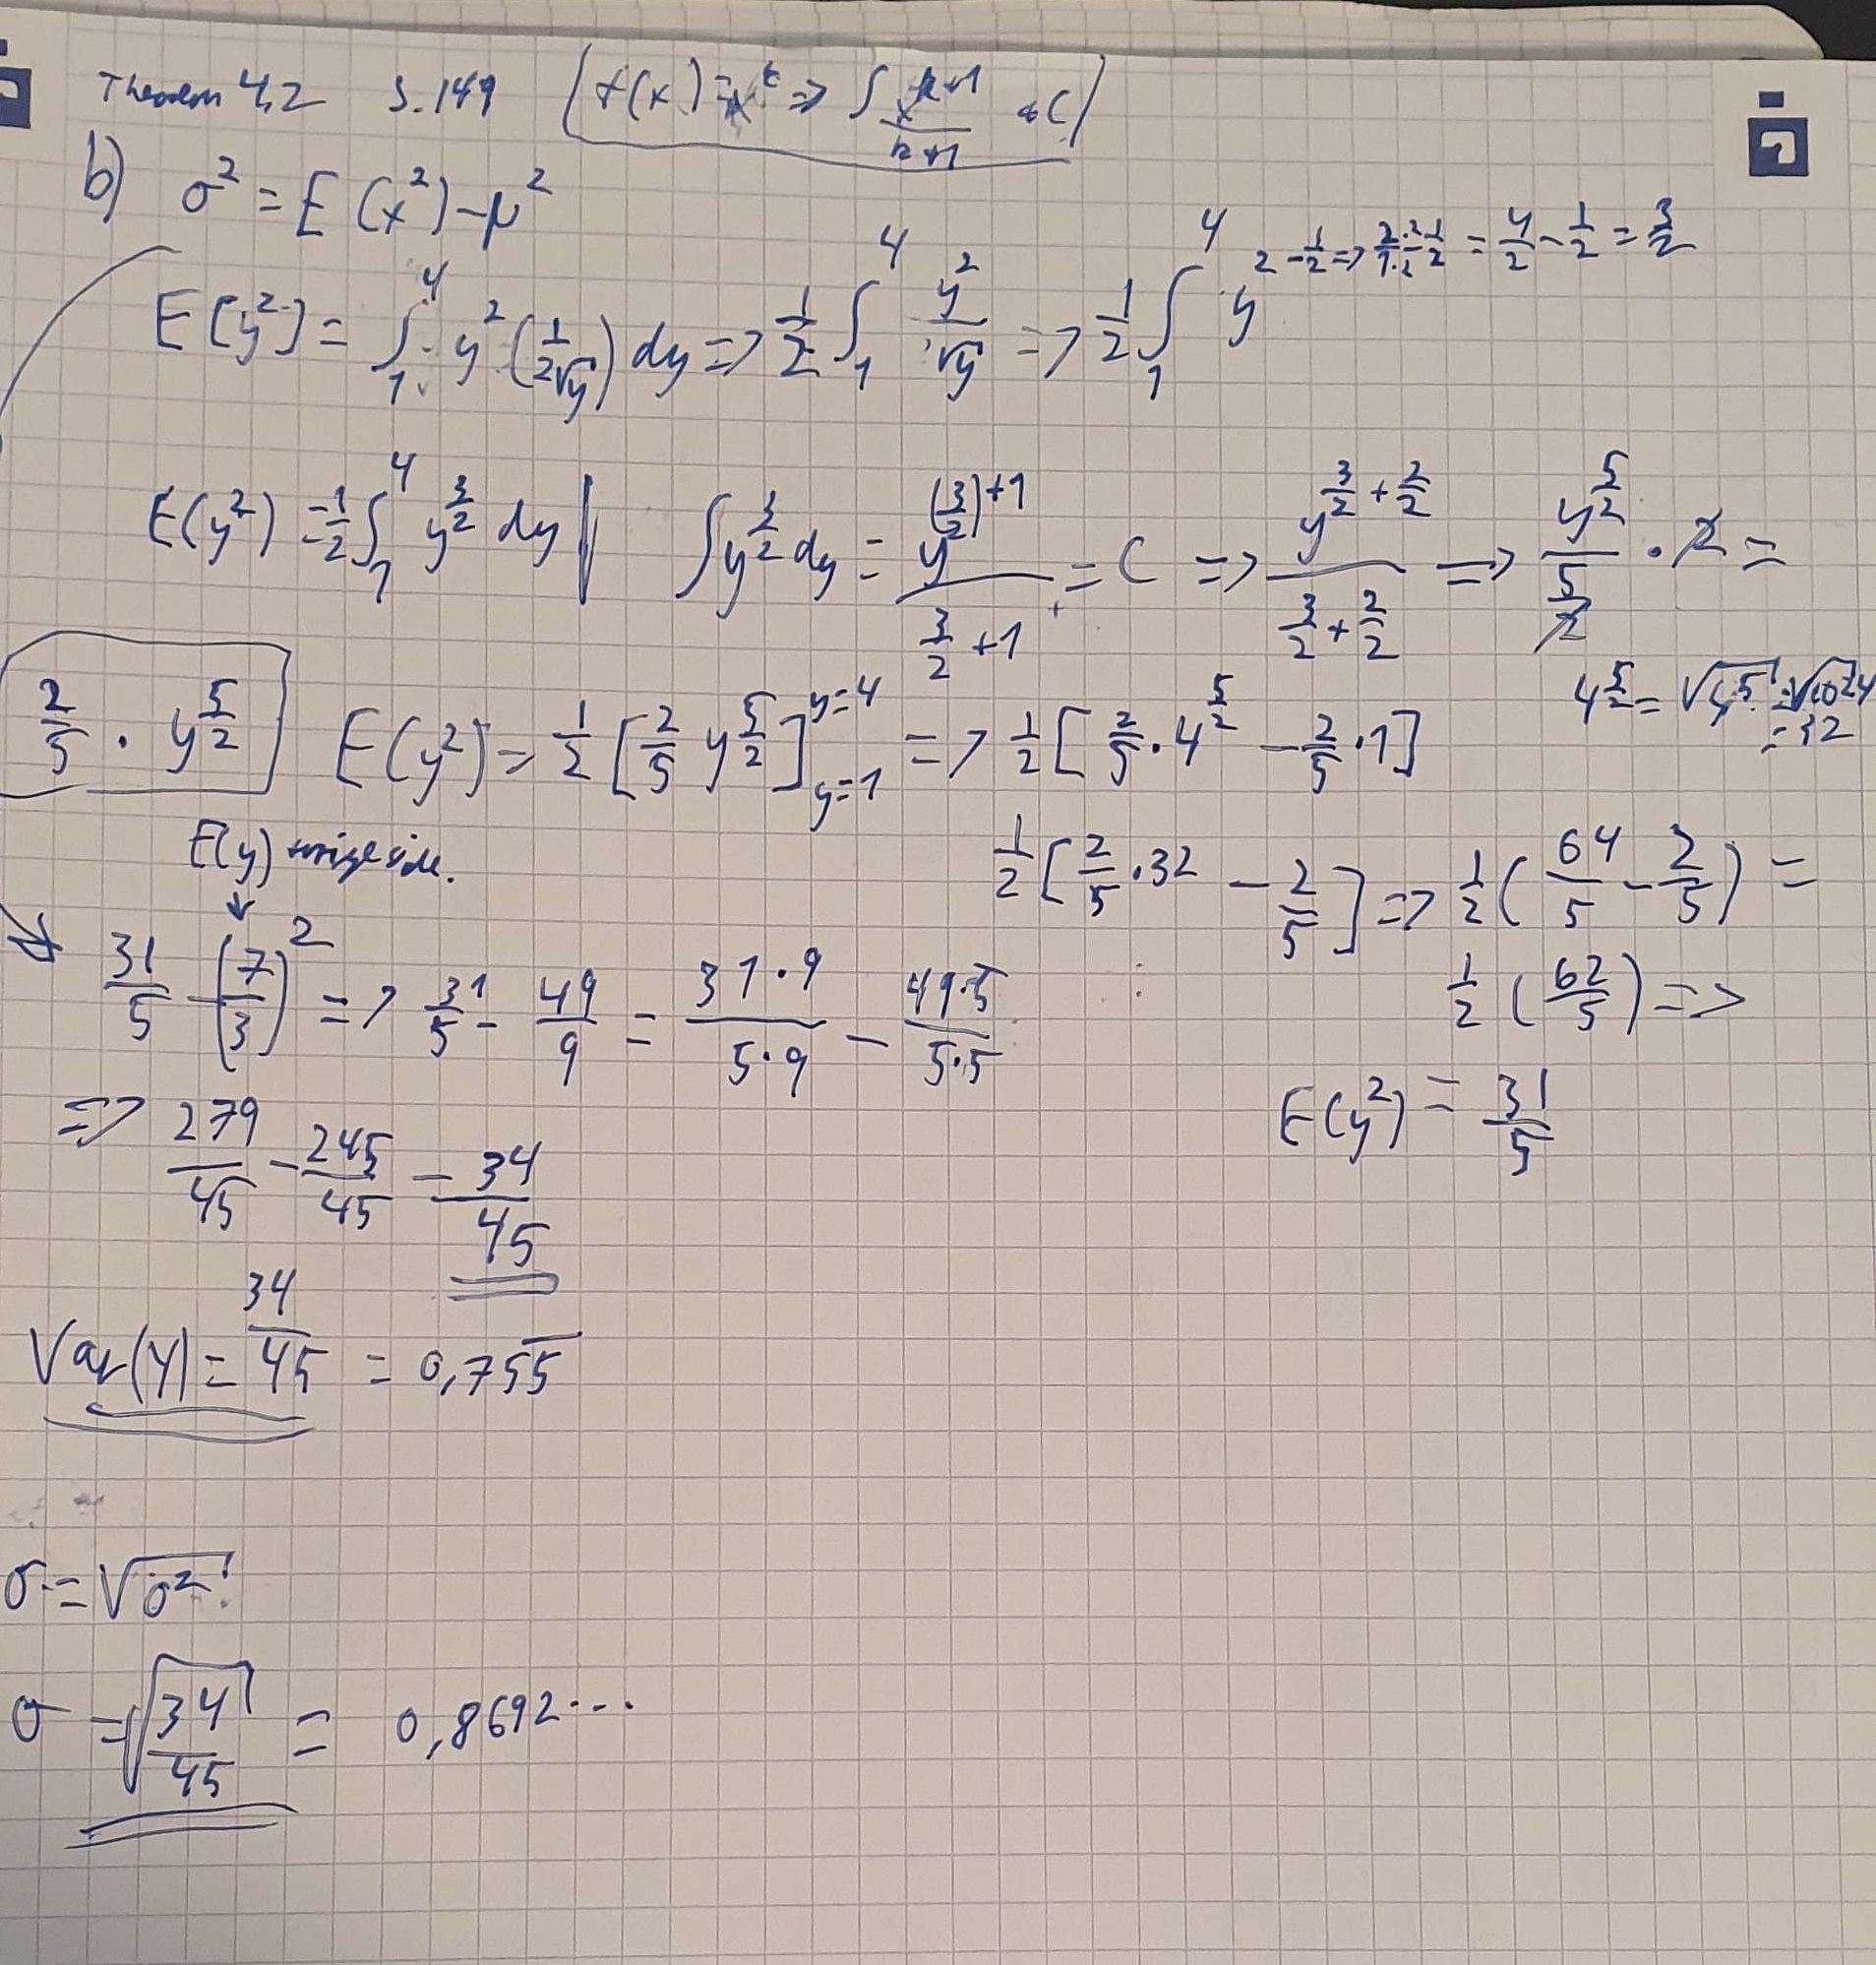 Theorem 4,2 S. 149 [f(x) = x^k => ∫ x^(k+1)/(k+1) + C]
b) σ² = E(x²) - μ²
E(y²) = ∫₁⁴ y² (1/(2√y)) dy => 1/2 ∫₁⁴ y²/√y => 1/2 ∫₁⁴ y^(2 - 1/2 => (2·2)/(1·2) - 1/2 = 4/2 - 1/2 = 3/2)
E(y²) = 1/2 ∫₁⁴ y^(3/2) dy | ∫ y^(3/2) dy = y^((3/2)+1)/(3/2 + 1) = C => y^(3/2 + 2/2)/(3/2 + 2/2) => y^(5/2)/(5/2) · 2 =
2/5 · y^(5/2) E(y²) = 1/2 [2/5 y^(5/2)]_(y=1)^(y=4) => 1/2 [2/5 · 4^(5/2) - 2/5 · 1] 4^(5/2) = √4⁵ = √1024 = 32
E(y) side.
1/2 [2/5 · 32 - 2/5] => 1/2 (64/5 - 2/5) =
31/5 - (7/3)² => 31/5 - 49/9 = (31·9)/(5·9) - (49·5)/(5·5)
1/2 (62/5) =>
E(y²) = 31/5
=> 279/45 - 245/45 - 34/45
Var(Y) = 34/45 = 0,755̅
σ = √σ²
σ = √(34/45) = 0,8692...